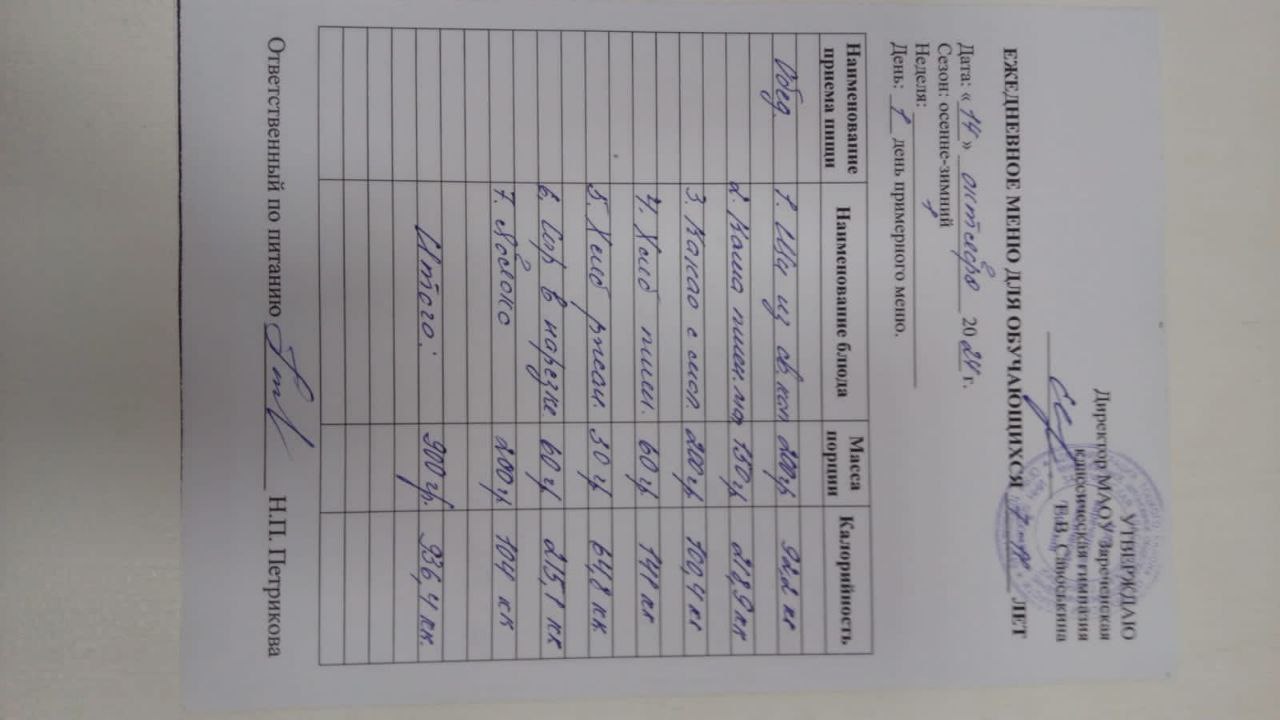 УТВЕРЖДАЮ
Директор МАОУ Зареченская
классическая гимназия
Е.В. Савоськина
ЕЖЕДНЕВНОЕ МЕНЮ ДЛЯ ОБУЧАЮЩИХСЯ ЛЕТ
Дата: « 14 » октября 2024 г.
Сезон: осенне-зимний
Неделя: 1
День: 1 день примерного меню.
Наименование приема пищи Наименование блюда Масса порции Калорийность
Обед. 1. Щи из св. кап 200гр 92.2 кк
2. Каша пшен. мол 150гр 218,9 кк
3. Какао с мол. 200гр 100,4 кк
4. Хлеб пшен. 60 гр 141 кк
5. Хлеб ржан. 30 гр 64,8 кк
6. Сыр в нарезке 60 гр 215,1 кк
7. Яблоко 200 гр 104 кк
Итого: 900гр. 936,4 кк.
Ответственный по питанию Н.П. Петрикова